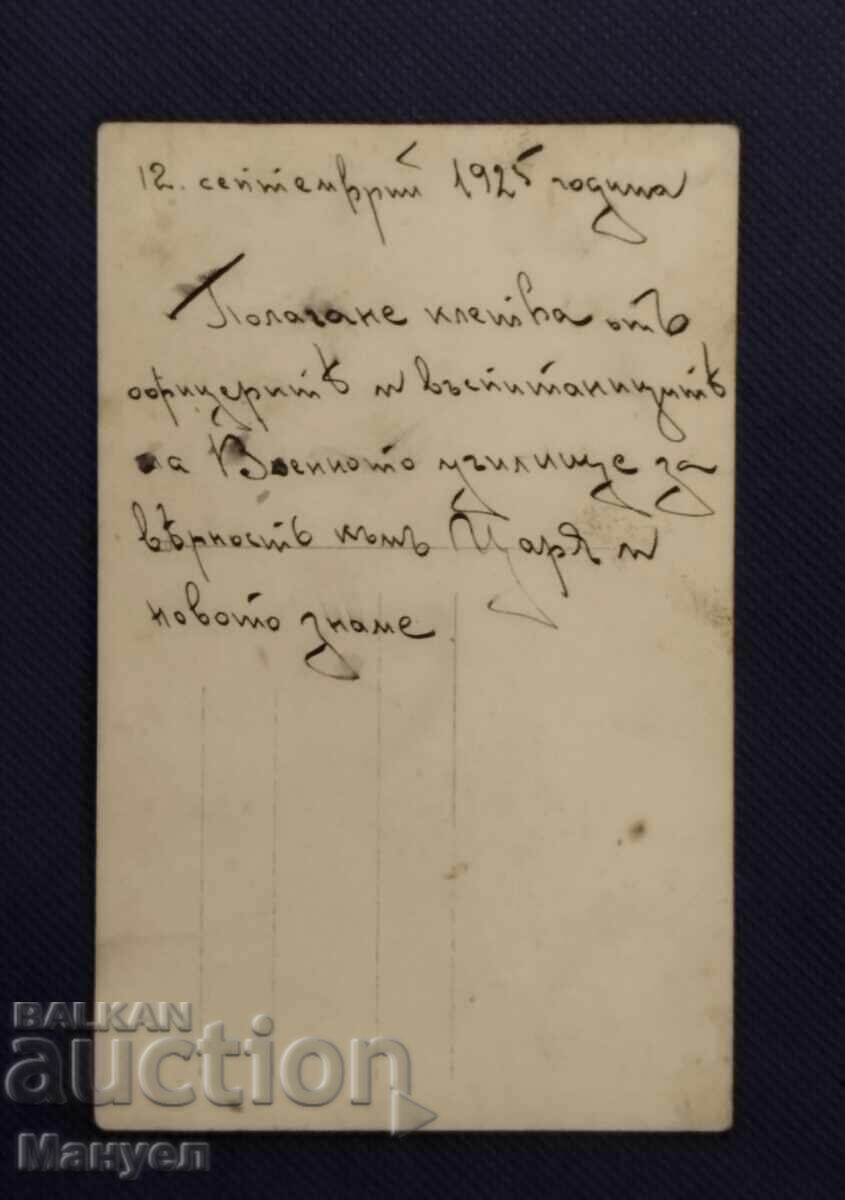 12. септемврий 1925 година
Полагане клетва отъ
офицеритѣ и въспитаницитѣ
на Военното училище за
вѣрность къмъ Царя и
новото знаме.
BALKAN
auction
Мануел